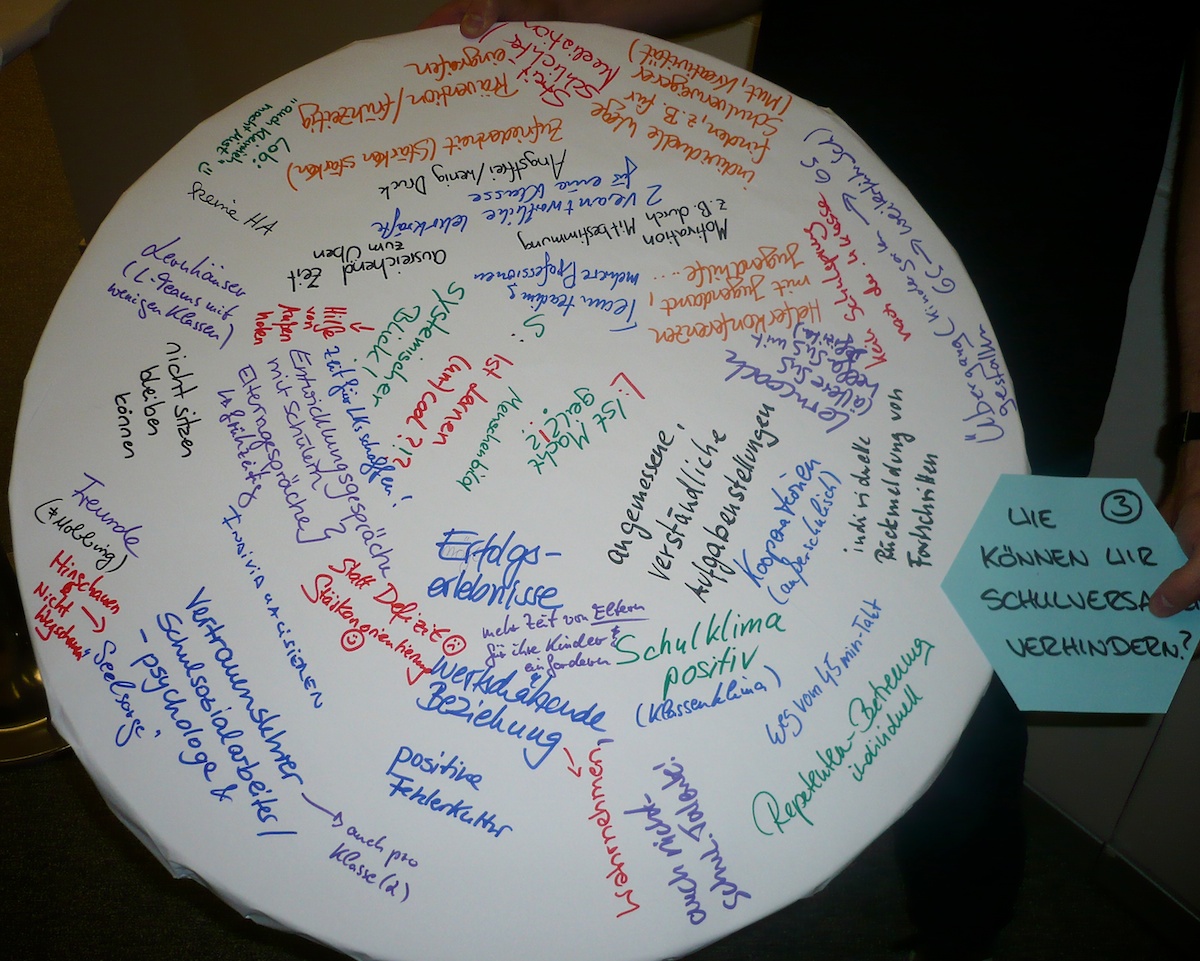 3
WIE
KÖNNEN WIR
SCHULVERSA
VERHINDERN?
Streit
schlichter
Mediation
individuelle Wege
finden, z.B. für
Schulverweigerer
(Mut, Kreativität)
Prävention/frühzeitig
eingreifen
Zufriedenheit (Stärken stärken)
Angstfrei/wenig Druck
2 verantwortliche Lehrkräfte
für eine Klasse
Motivation
z.B. durch Mitbestimmung
Lob:
"auch Kleinvieh
macht Mist"
keine HA
Ausreichend Zeit
zum Üben
Teamteaching
mehrere Professionen
Helferkonferenzen
mit Jugendamt,
Jugendhilfe...
Lernhäuser
(L-Teams mit
wenigen Klassen)
Hilfe
von
außen
holen
Systemischer
Blick,
Ist Lernen
(un)cool?!?
Menschenbild
Ist Macht
geil?!?
Zeit für Lk. schaffen!
Entwicklungsgespräche
mit Schülern &
Elterngespräche
frühzeitig
nicht sitzen
bleiben
können
Freunde
(≠ Mobbing)
Hinschauen
Nicht
Wegschauen
Seelsorge,
Vertrauenslehrer
Schulsozialarbeiter/
-psychologe &
auch pro
Klasse (2)
Statt Defizit
Stärkenorientierung
Erfolgs-
erlebnisse
mehr Zeit von Eltern
für ihre Kinder
einfordern
Wertschätzende
Beziehung
Wahrnehmen,
auch nicht-
schul. Talente!
positive
Fehlerkultur
Schulklima
positiv
(Klassenklima)
Weg vom 45 min-Takt
(Repetenten-Betreuung
individuell
angemessene,
verständliche
Aufgabenstellungen
Kooperationen
(außerschulisch)
individuelle
Rückmeldung von
Fortschritten
Lerncoach
(ältere SuS
helfen SuS mit
Defizite)
kein Schulsprung
nach der 4. Klasse
Übergang (Kinderga → GS
GS → weiterf. Schule)
gestalten